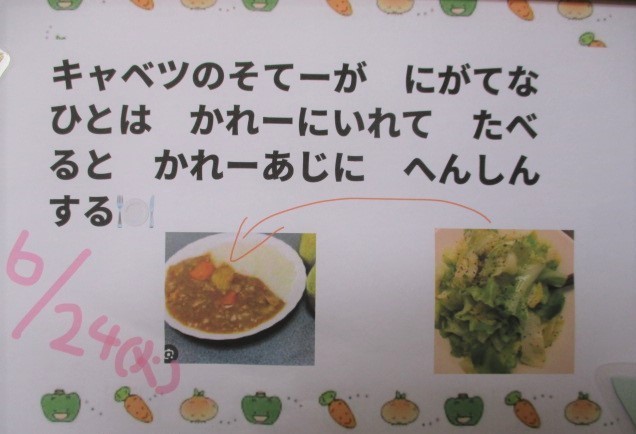 キャベツのそてーが　にがてな
ひとは　かれーにいれて　たべ
ると　かれーあじに　へんしん
する🍽
6/24(火)